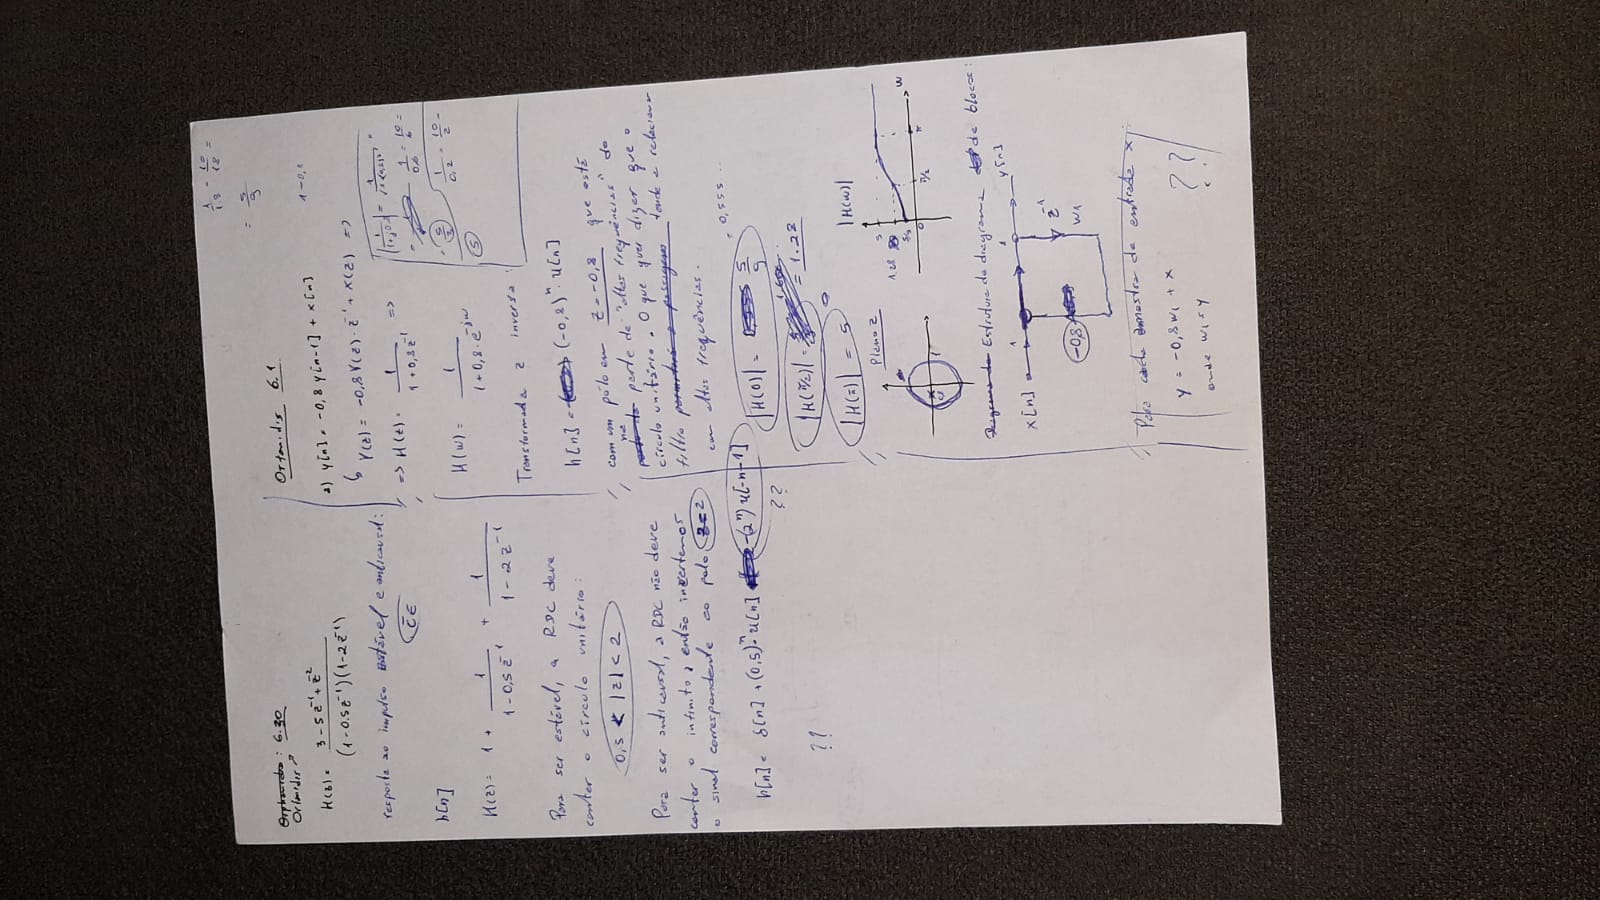 Orfanidis: 6.30
H(z) = 3 - 5z⁻¹ + z⁻²
(1 - 0.5z⁻¹)(1 - 2z⁻¹)
resposta ao impulso estável e anticausal:
h[n]
H(z) = 1 + 1 / (1 - 0,5z⁻¹) + 1 / (1 - 2z⁻¹)
Para ser estável, a RDC deve
conter o círculo unitário:
0,5 < |z| < 2
Para ser anticausal, a RDC não deve
conter o infinito, então invertemos
o sinal correspondente ao polo z=2
h[n] = δ[n] + (0,5)ⁿ u[n] -(2ⁿ) u[-n-1]
??
??
Orfanidis 6.1
a) y[n] = -0,8 y[n-1] + x[n]
↳ Y(z) = -0,8 Y(z) z⁻¹ + X(z) =>
=> H(z) = 1 / (1 + 0,8z⁻¹) =>
H(w) = 1 / (1 + 0,8·e⁻ʲʷ)
1/1.8 = 10/18 =
= 5/9
1 - 0,8
1/0.6 = 10/6 =
= 5/3
1/0.2 = 10/2 =
5
Transformada z inversa:
h[n] = (-0,8)ⁿ · u[n]
com um polo em z = -0,8 que está
na parte de "altas frequências" do
círculo unitário. O que quer dizer que o
filtro tende a relacionar
com altas frequências.
|H(0)| = 5/9 = 0,555...
|H(π/2)| = 1.28
|H(π)| = 5
Plano z
1
|H(w)|
5
1.28
5/9
0
π/2
π
w
Estrutura de diagrama de blocos:
x[n] 1 1 y[n]
z⁻¹
-0,8 w1
Para cada amostra de entrada x:
y = -0,8w₁ + x
onde w₁ = y
??